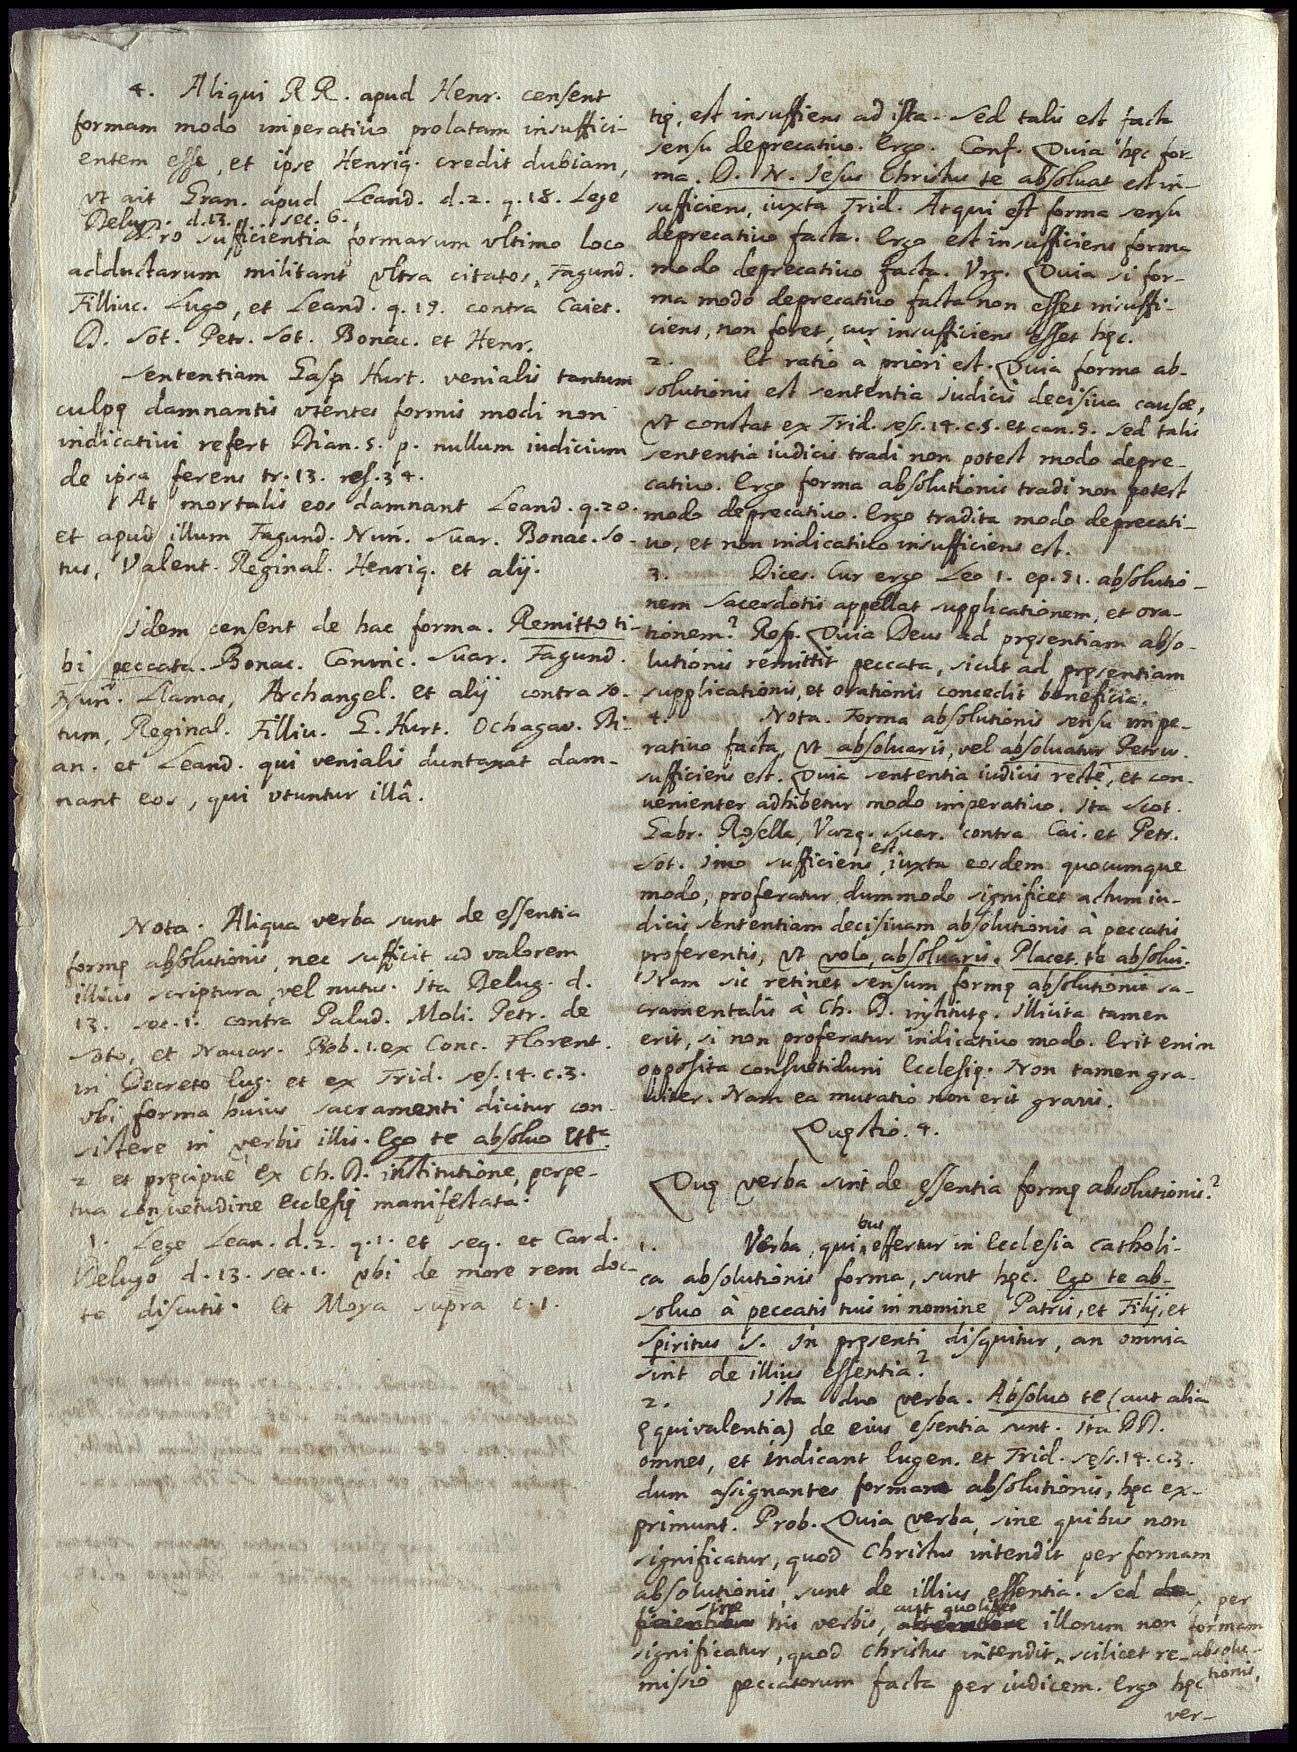 4. Aliqui RR. apud Henr. censent
formam modo imperativo prolatam insuffici-
entem esse, et ipse Henriq. credit dubiam,
vt ait Gran. apud Leand. d.2. q.18. Lege
Delug. d.13. sec.6.
Pro sufficientia formarum vltimo loco
adductarum militant vltra citatos, Fagund.
Filliuc. Lugo, et Leand. q.19. contra Caiet.
D. Sot. Petr. Sot. Bonac. et Henr.
Sententiam Gasp Hurt. venialis tantum
culpę damnantis vtentes formis modi non
indicativi refert Dian. 5. p. nullum iudicium
de ipsa ferens tr.13. res.34.
At mortalis eos damnant Leand. q.20.
et apud illum Fagund. Nuñ. Suar. Bonac. So-
tus, Valent. Reginal. Henriq. et alij.
Idem censent de hac forma. Remitto ti-
bi peccata. Bonac. Coninc. Suar. Fagund.
Nuñ. Llamas, Archangel. et alij contra So-
tum, Reginal. Filliu. G. Hurt. Ochagav. Di-
an. et Leand. qui venialis duntaxat dam-
nant eos, qui vtuntur illâ.
Nota. Aliqua verba sunt de essentia
formę absolutionis, nec sufficit ad valorem
illius scriptura, vel nutus. Ita Delug. d.
13. sec.1. contra Palud. Moli. Petr. de
Soto, et Navar. Prob. 1. ex Conc. Florent.
in Decreto Eug. et ex Trid. ses.14. c.3.
vbi forma huius sacramenti dicitur con-
sistere in verbis illis. Ego te absolvo ettc.
2 et pręcipuè ex Ch. D. institutione, perpe-
tua consuetudine Ecclesię manifestata.
1. Lege Lean. d.2. q.1. et seq. et Card.
Delugo d.13. sec.1. vbi de more rem doc-
te discutit. Et Moya supra c.1.
tię, est insufficiens ad ista. Sed talis est facta
sensu deprecativo. Ergo. Conf. Quia hęc for-
ma. D. N. Jesus Christus te absoluat est in-
sufficiens, iuxta Trid. Atqui est forma sensu
deprecativo facta. Ergo est insufficiens forma
modo deprecativo facta. Vrg. Quia si for-
ma modo deprecativo facta non esset insuffi-
ciens, non foret, cur insufficiens esset hęc.
2. Et ratio à priori est. Quia forma ab-
solutionis est sententia iudicis decisiva causæ,
vt constat ex Trid. ses.14. c.5. et can.9. Sed talis
sententia iudicis tradi non potest modo depre-
cativo. Ergo forma absolutionis tradi non potest
modo deprecativo. Ergo tradita modo deprecati-
vo, et non indicativo insufficiens est.
3. Dices. Cur ergo Leo 1. ep.91. absolutio-
nem sacerdotis appellat supplicationem, et ora-
tionem? Resp. Quia Deus ad pręsentiam abso-
lutionis remittit peccata, sicut ad pręsentiam
supplicationis, et orationis concedit beneficia.
4. Nota. Forma absolutionis sensu impe-
rativo facta, vt absoluaris, vel absoluatur Petrus.
sufficiens est. Quia sententia iudicis rectè, et con-
venienter adhibetur modo imperativo. Ita Scot.
Gabr. Rosella, Vazq. Suar. contra Cai. et Petr.
Sot. Imo sufficiens est iuxta eosdem quocumque
modo, proferatur, dummodo significet actum iu-
dicis sententiam decisivam absolutionis à peccatis
proferentis, vt volo, absoluaris. Placet, te absolui.
Nam sic retinet sensum formę absolutionis sa-
cramentalis à Ch. D. institutę. Illicita tamen
erit, si non proferatur indicativo modo. Erit enim
opposita consuetudini Ecclesię. Non tamen gra-
viter. Nam ea mutatio non erit gravis.
Quęstio. 4.
Quę verba sint de essentia formę absolutionis?
1. Verba, quibus effertur in Ecclesia Catholi-
ca absolutionis forma, sunt hęc. Ego te ab-
solvo à peccatis tuis in nomine Patris, et Filij, et
Spiritus S. In pręsenti disquitur, an omnia
sint de illius essentia?
2. Ista duo verba. Absolvo te (aut alia
ęquivalentia) de eius essentia sunt. Ita DD.
omnes, et indicant Eugen. et Trid. ses.14. c.3.
dum assignantes formam absolutionis, hęc ex-
primunt. Prob. Quia verba, sine quibus non
significatur, quod Christus intendit per formam
absolutionis, sunt de illius essentia. Sed
sine his verbis, aut quolibet illorum non
significatur, quod Christus intendit, scilicet re-
per formam absolutionis,
missio peccatorum facta per iudicem. Ergo hęc
ver-